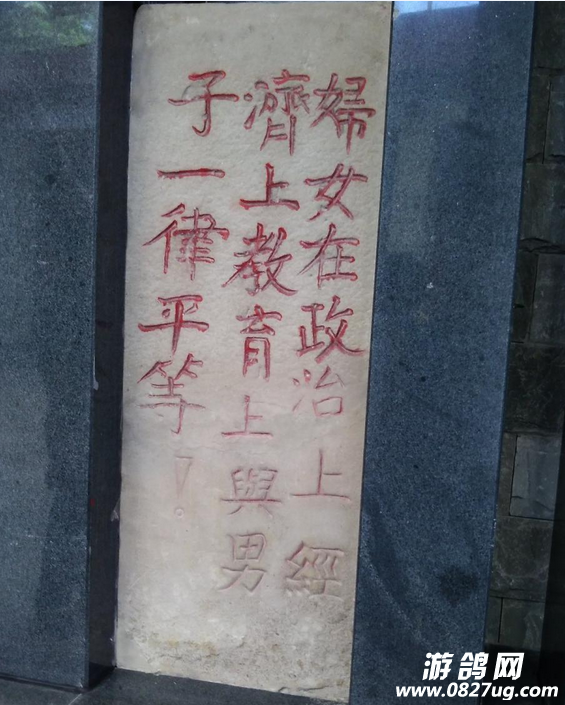 婦女在政治上經
濟上教育上與男
子一律平等！
游鸽网
www.0827ug.com